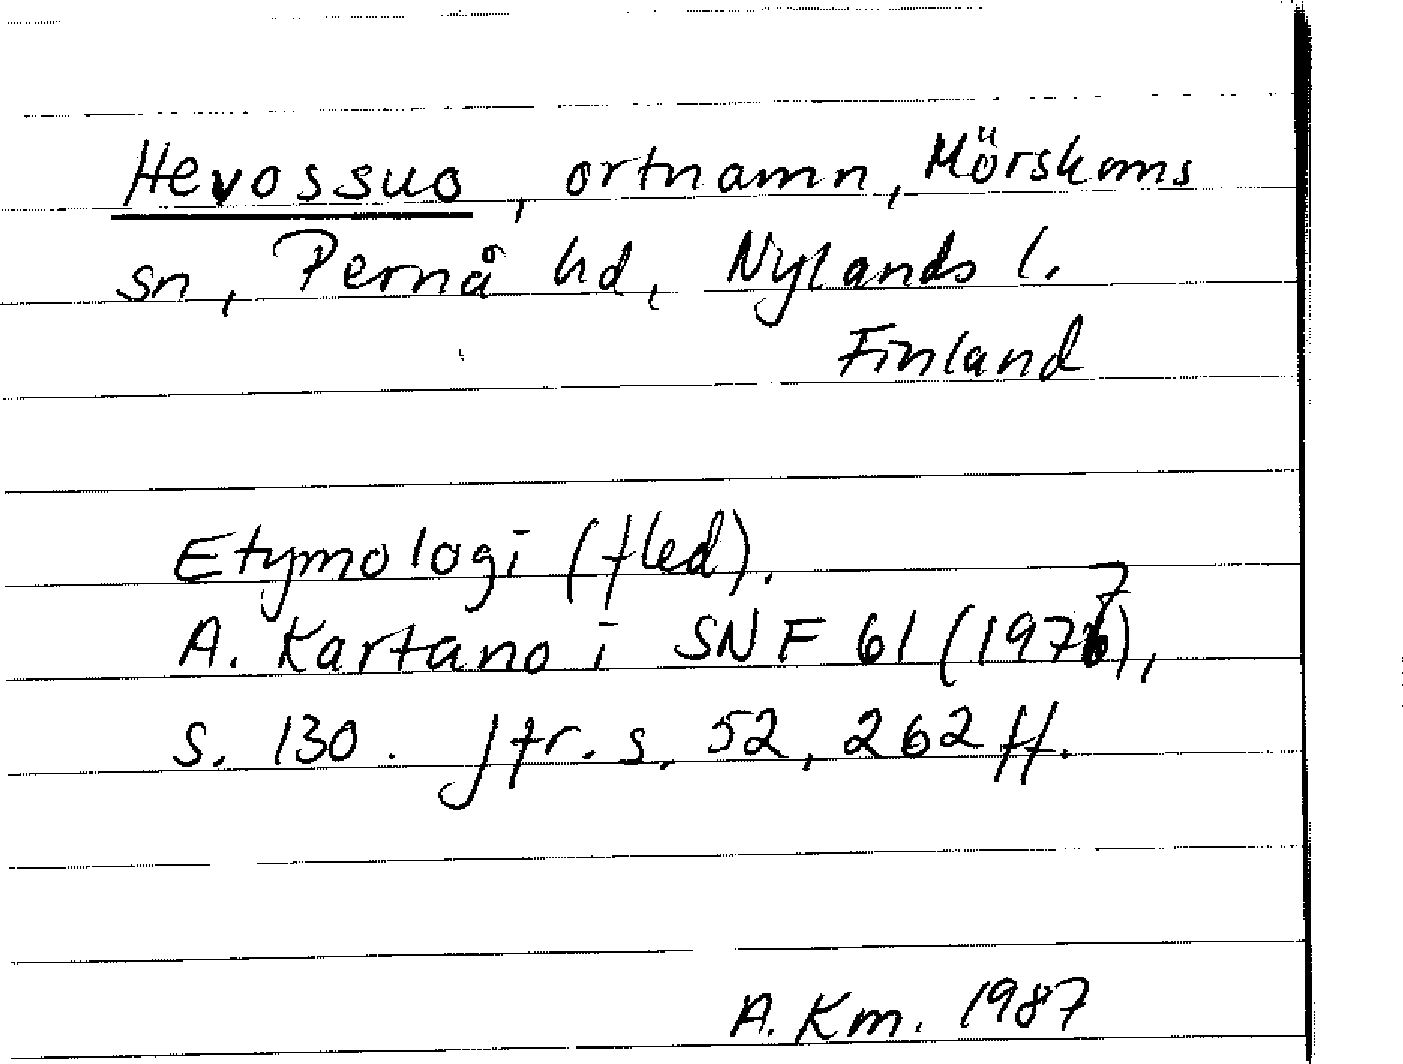 Hevossuo, ortnamn, Mörskoms
sn, Pernå hd, Nylands l.
Finland
Etymologi (fled).
A. Kartano i SNF 61 (1977),
s. 130. Jfr. s. 52, 262 ff.
A. Km. 1987